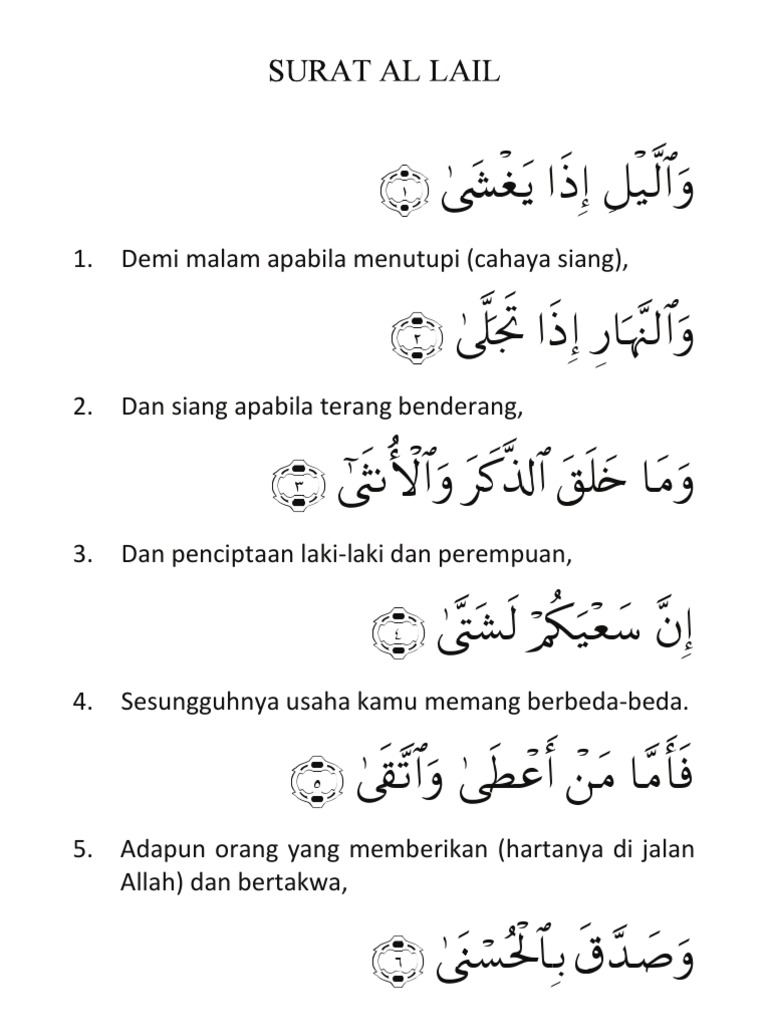 SURAT AL LAIL
وَٱلَّيۡلِ إِذَا يَغۡشَىٰ ١
1. Demi malam apabila menutupi (cahaya siang),
وَٱلنَّهَارِ إِذَا تَجَلَّىٰ ٢
2. Dan siang apabila terang benderang,
وَمَا خَلَقَ ٱلذَّكَرَ وَٱلۡأُنثَىٰٓ ٣
3. Dan penciptaan laki-laki dan perempuan,
إِنَّ سَعۡيَكُمۡ لَشَتَّىٰ ٤
4. Sesungguhnya usaha kamu memang berbeda-beda.
فَأَمَّا مَنۡ أَعۡطَىٰ وَٱتَّقَىٰ ٥
5. Adapun orang yang memberikan (hartanya di jalan
Allah) dan bertakwa,
وَصَدَّقَ بِٱلۡحُسۡنَىٰ ٦